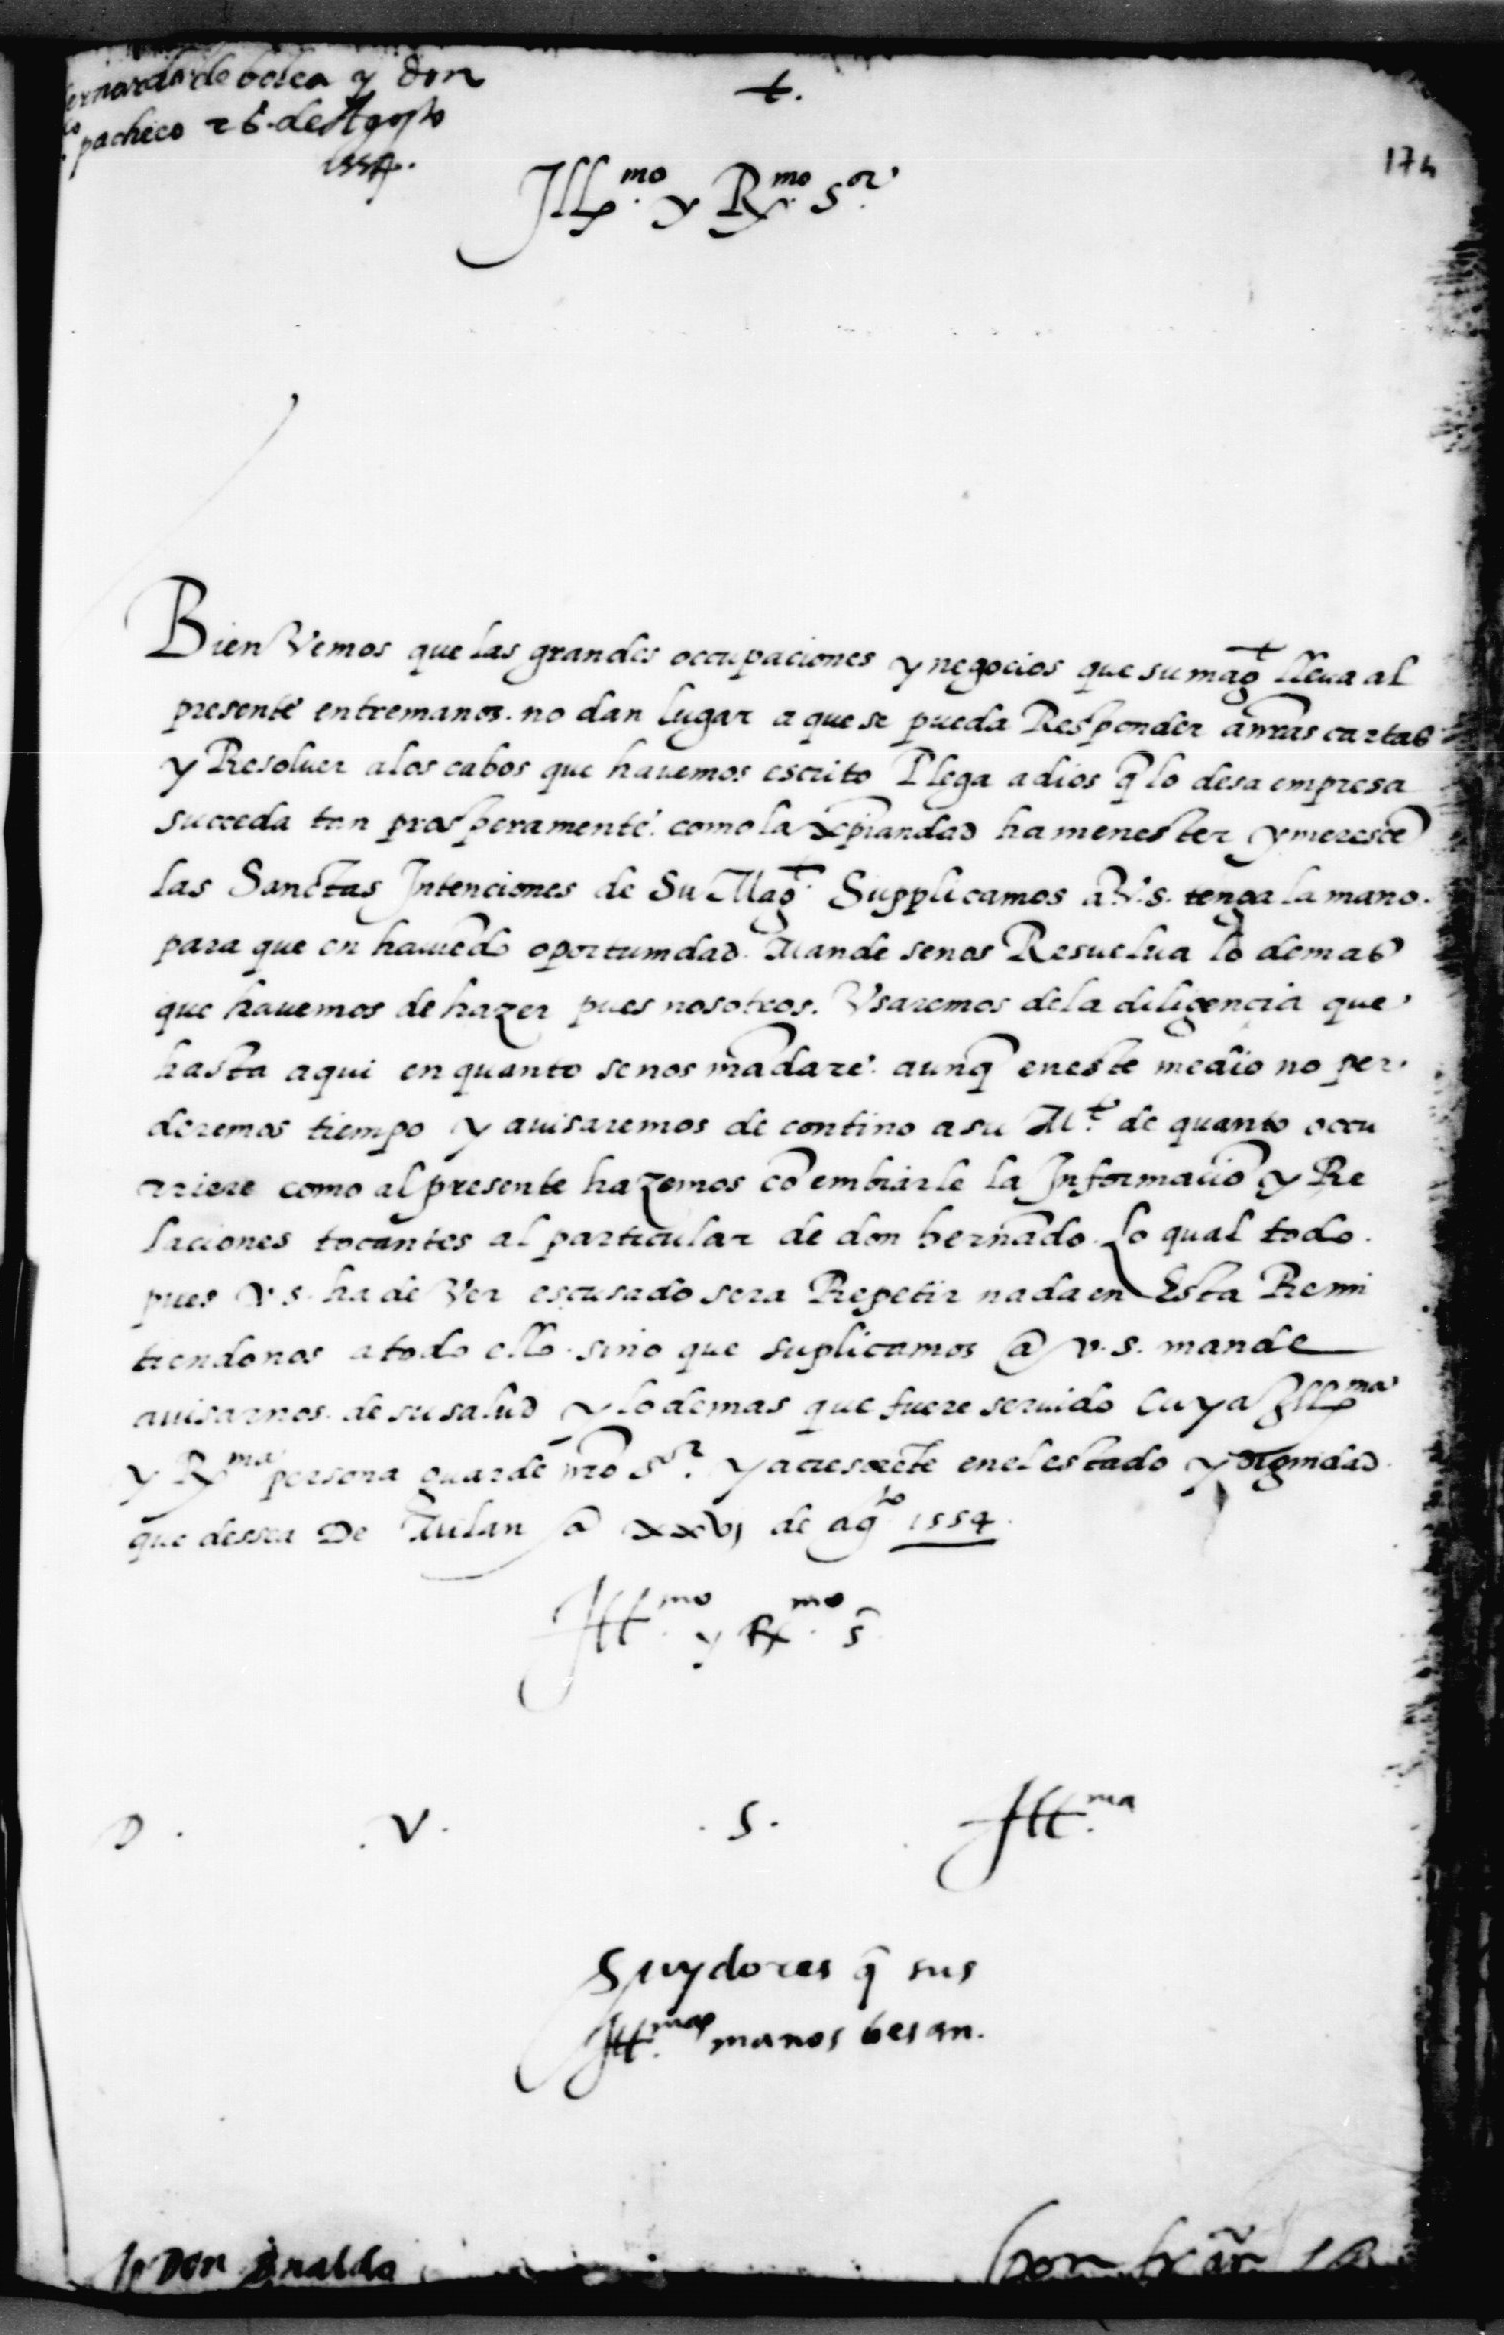 bernardo de bolea y don
co pacheco 26 de Agosto
1554.
+.
174
Ill.mo y R.mo S.or
Bien Vemos que las grandes occupaciones y negocios que su mag.t lleua al
presente entremanos. no dan lugar a que se pueda Responder a nr̃as cartas
y Resoluer a los cabos que hauemos escrito Plega a dios q̃ lo desa empresa
succeda tan prosperamente. como la xp̃iandad ha menester y meresçe
las Sanctas Intenciones de Su Mag.t Supplicamos a V.s. tenga la mano.
para que en hauiẽdo oportunidad. Mande se nos Resuelua lo demas
que hauemos de hazer pues nosotros. Vsaremos de la diligençia que
hasta aqui en quanto se nos mãdare. aunq̃ en este medio no per
deremos tiempo y auisaremos de contino a su M.t de quanto occu
rriere como al presente hazemos cõ embiarle la Informaciõ y Re
laciones tocantes al particular de don bernãdo. lo qual todo.
pues V.s. ha de Ver escusado sera Repetir nada en Esta Remi
tiendonos a todo ello. sino que suplicamos a v.s. mande
auisarnos. de su salud y lo demas que fuere seruido Cuya Ill.ma
y R.ma persona guarde nr̃o S.or y acresçiẽte en el estado y dignidad
que dessea De Milan a xxvj de ag.to 1554.
Ill.mo y R.mo S.
D. .V. .S. Ill.ma
Seruydores q̃ sus
Ill.mas manos besan.
Don
Don